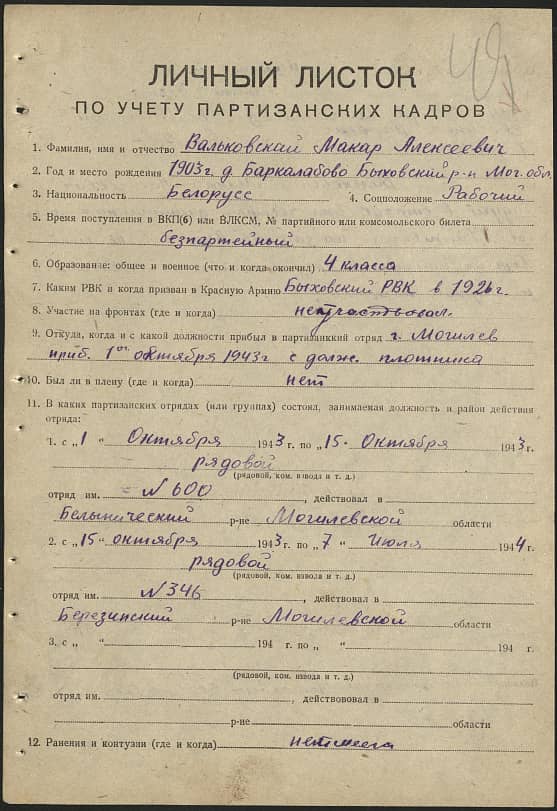 ЛИЧНЫЙ ЛИСТОК
ПО УЧЕТУ ПАРТИЗАНСКИХ КАДРОВ
1. Фамилия, имя и отчество Вальковский Макар Алексеевич
2. Год и место рождения 1903 г. д. Баркалабово Быховский р-н Мог. обл.
3. Национальность Белорусс 4. Соцположение Рабочий
5. Время поступления в ВКП(б) или ВЛКСМ, № партийного или комсомольского билета
безпартейный
6. Образование: общее и военное (что и когда окончил) 4 класса
7. Каким РВК и когда призван в Красную Армию Быховский РВК в 1926 г.
8. Участие на фронтах (где и когда) неучаствовал.
9. Откуда, когда и с какой должности прибыл в партизанкий отряд г. Могилев
приб. 1ого октября 1943 г с долж. плотника
10. Был ли в плену (где и когда) нет
11. В каких партизанских отрядах (или группах) состоял, занимаемая должность и район действия
отряда:
1. с „1“ Октября 1943 г. по „15“ Октября 1943 г.
рядовой
(рядовой, ком. взвода и т. д.)
отряд им. № 600, действовал в
Белынический р-не Могилевской области
2. с „15“ октября 1943 г. по „7“ Июля 1944 г.
рядовой
(рядовой, ком. взвода и т. д.)
отряд им. № 346, действовал в
Березинский р-не Могилевской области
3. с „ “ 194 г. по „ “ 194 г.
(рядовой, ком. взвода и т. д.)
отряд им. , действововал в
р-не области
12. Ранения и контузии (где и когда)